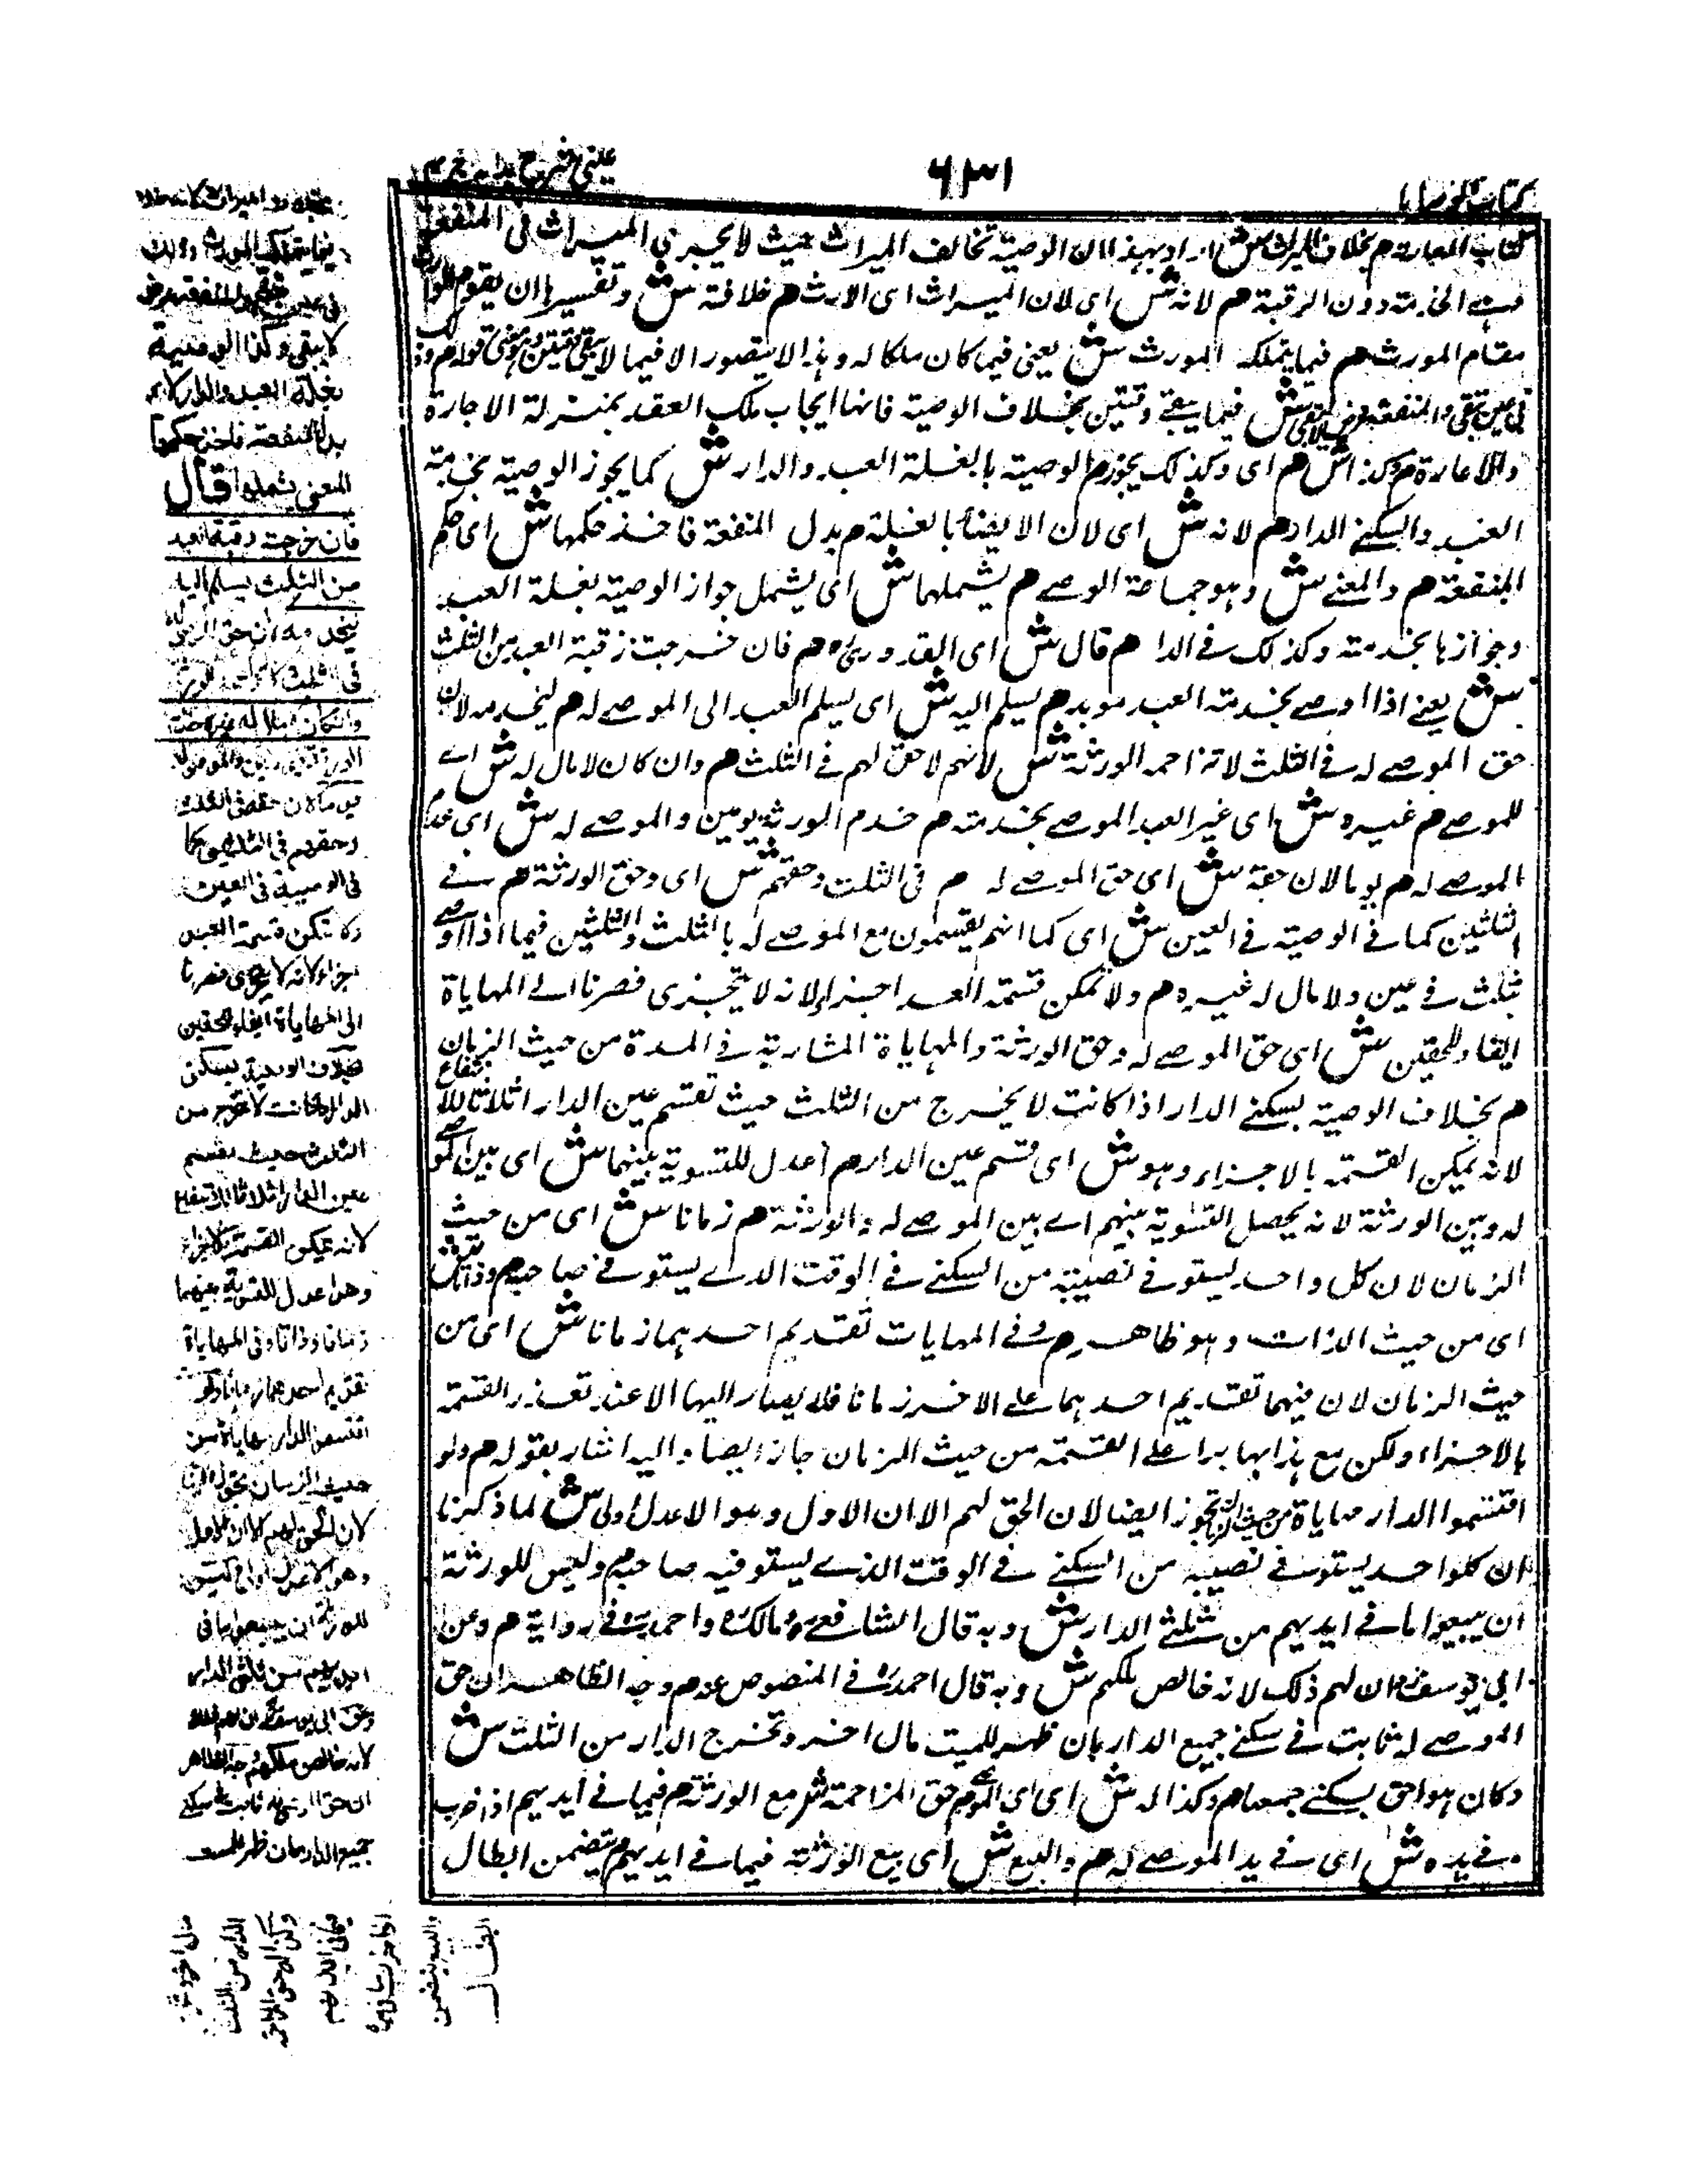 كتاب الوصايا
٦٣١
عيني شرح هدايه ج ٤
كتاب العارية م بخلاف الميراث ش اراد بهذا ان الوصية تخالف الميراث حيث لا يجري الميراث في المنفعة
وهي الخدمة دون الرقبة هم لانه ش اى لان الميراث اى الارث هم خلافة ش وتفسيرها ان يقوم الوارث
مقام المورث هم فيما يتملكه المورث ش يعنى فيما كان ملكا له وهذا لا يتصور الا فيما لا يبقى وقتين وهو معنى قوله م وذلك
في عين تبقى والمنفعة عرض لا يبقى ش فيما يبقے وقتين بخلاف الوصية فانها ايجاب ملك العقد بمنزلة الاجارة
والاعارة م وكذا ش هم اى وكذلك يجوز م الوصية بالغلة العبد والدار ش كما يجوز الوصية بخدمته
العبد والسكنے الدار هم لانه ش اى لان الايضا بالغلة م بدل المنفعة فاخذ حكمها ش اى حكم
المنفعة هم والمعنے ش وهو جماعة الوصے هم يشملهما ش اى يشمل جواز الوصية بغلة العبد
وجوازها بخدمته وكذلك فے الدار هم قال ش اى القدورى رہ هم فان خرجت رقبة العبد من الثلث
ش يعنے اذا اوصے بخدمته العبد موبد هم يسلم اليه ش اى يسلم العبد الى الموصے له هم ليخدمه لان
حق الموصے له فے الثلث لا تزاحمه الورثة ش لانهم لا حق لهم فے الثلث هم وان كان لا مال له ش اے
للموصے هم غيره ش اى غير العبد الموصے بخدمته هم خدم الورثة يومين والموصے له ش اى خدم
الموصے له هم يوما لان حقه ش اى حق الموصے له م فى الثلث وحقهم ش اى وحق الورثة هم فے
الثلثين كما فے الوصية فے العين ش اى كما انهم يقتسمون مع الموصے له بالثلث والثلثين فيما اذا اوصے
بثلث فے عين ولا مال له غيره هم ولا تمكن قسمته العبد اجزاء لانه لا يتجزى فصرنا الے المهاياة
ايفاء للحقين ش اى حق الموصے له وحق الورثة والمهاياة المشاربة فے المدة من حيث الزمان
هم بخلاف الوصية بسكنے الدار اذا كانت لا يخرج من الثلث حيث تقتسم عين الدار اثلاثا للانتفاع
لانه يمكن القسمته بالاجزاء وهو ش اى قسم عين الدار م اعدل للتسوية بينهما ش اى بين الموصے
له وبين الورثة لانه يحصل التسوية بينهم اے بين الموصے له والورثة هم زمانا ش اى من حيث
الزمان لان كل واحد يستوفے نصيبه من السكنے فے الوقت الذے يستوفے صاحبه م وذاتا ش
اى من حيث الذات وهو ظاهر م وفے المهايات تقديم احدهما زمانا ش اى من
حيث الزمان لان فيهما تقديم احدهما على الاخر زمانا فلا يصار اليها الا عند تعذر القسمته
بالاجزاء ولكن مع هذا بها براء على القسمته من حيث الزمان جاز ايضا واليه اشار بقوله م ولو
اقتسموا الدار مهاياة من حيث الزمان تجوز ايضا لان الحق لهم الا ان الاول وهو الاعدل اولى ش لما ذكرنا
ان كل واحد يستوفے نصيبه من السكنے فے الوقت الذے يستوفيه صاحبه م وليس للورثة
ان يبيعوا ما فے ايديهم من ثلثے الدار ش وبه قال الشافعے رہ ومالك رہ واحمد رہ فے رواية هم وعن
ابى يوسف رہ ان لهم ذلك لانه خالص ملكهم ش وبه قال احمد رہ فے المنصوص عنه م وجه الظاهر ان حق
الموصے له ثابت فے سكنے جميع الدار بان ظهر للميت مال اخر وتخرج الدار من الثلث ش
وكان هو احق بسكنے جمعها م وكذا له ش اى اى الموصے م حق المزاحمة ش مع الورثة م فيما فے ايديهم اذا خرب
ما فے يده ش اى فے يد الموصے له هم والبيع ش اى بيع الورثة فيما فے ايديهم م يتضمن ابطال
فيما يتملكه المورث وذلك
فى عين تبقى والمنفعة عرض
لا يبقى وكذا الوصية
بغلة العبد والدار لانه
بدل المنفعة فاخذ حكمها
المعنى يشملها قال
فان خرجت رقبة العبد
من الثلث يسلم اليه
ليخدمه لان حق الموصى له
فى الثلث لا تزاحمه الورثة
وان كان لا مال له غيره خدم
الورثة يومين والموصى له
يوما لان حقه فى الثلث
وحقهم فى الثلثين كما
فى الوصية فى العين
ولا تمكن قسمة العبد
اجزاء لانه لا يتجزى فصرنا
الى المهاياة ايفاء للحقين
بخلاف الوصية بسكنى
الدار اذا كانت لا تخرج من
الثلث حيث يقسم
عين الدار اثلاثا للانتفاع
لانه يمكن القسمة بالاجزاء
وهو اعدل للتسوية بينهما
زمانا وذاتا وفى المهاياة
تقديم احدهما زمانا ولو
اقتسموا الدار مهاياة من
حيث الزمان تجوز ايضا
لان الحق لهم الا ان الاول
وهو الاعدل اولى وليس
للورثة ان يبيعوا ما فى
ايديهم من ثلثى الدار
وعن ابى يوسف ان لهم ذلك
لانه خالص ملكهم وجه الظاهر
ان حق الموصى له ثابت فى سكنى
جميع الدار بان ظهر للميت
مال اخر وتخرج
الدار من الثلث
وكذا له حق المزاحمة
فيما فى ايديهم
اذا خرب ما فى يده
والبيع يتضمن
ابطال